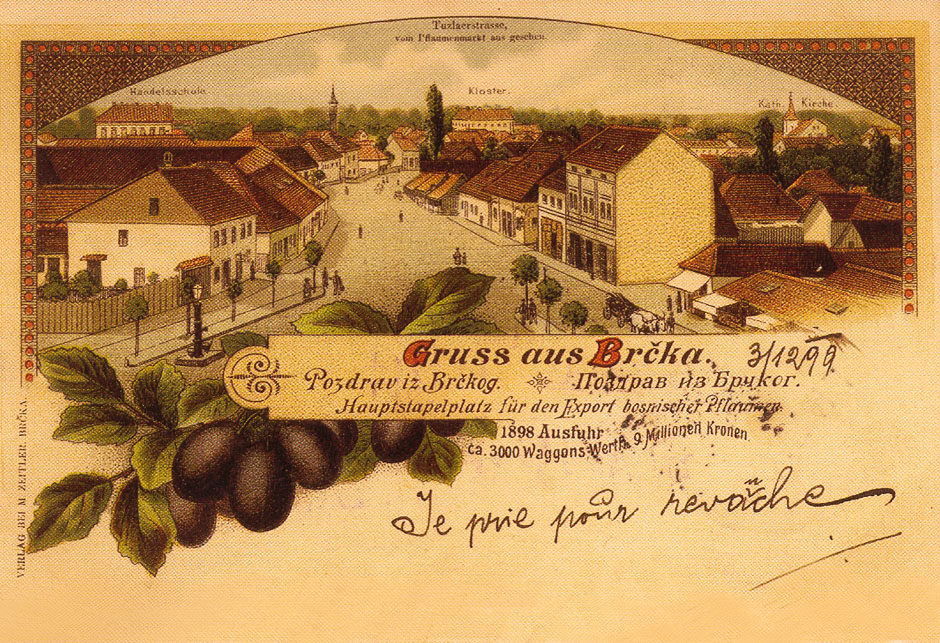 Tuzlaerstrasse,
vom Pflaumenmarkt aus gesehen.
Handelsschule
Kloster.
Kath. Kirche.
Gruss aus Brčka.
3/12 99
Pozdrav iz Brčkog. Поздрав из Брчког.
Hauptstapelplatz für den Export bosnischer Pflaumen.
1898 Ausfuhr
ca. 3000 Waggons-Werth 9 Millionen Kronen
Je prie pour revãche
VERLAG BEI M ZEITLER, BRČKA.